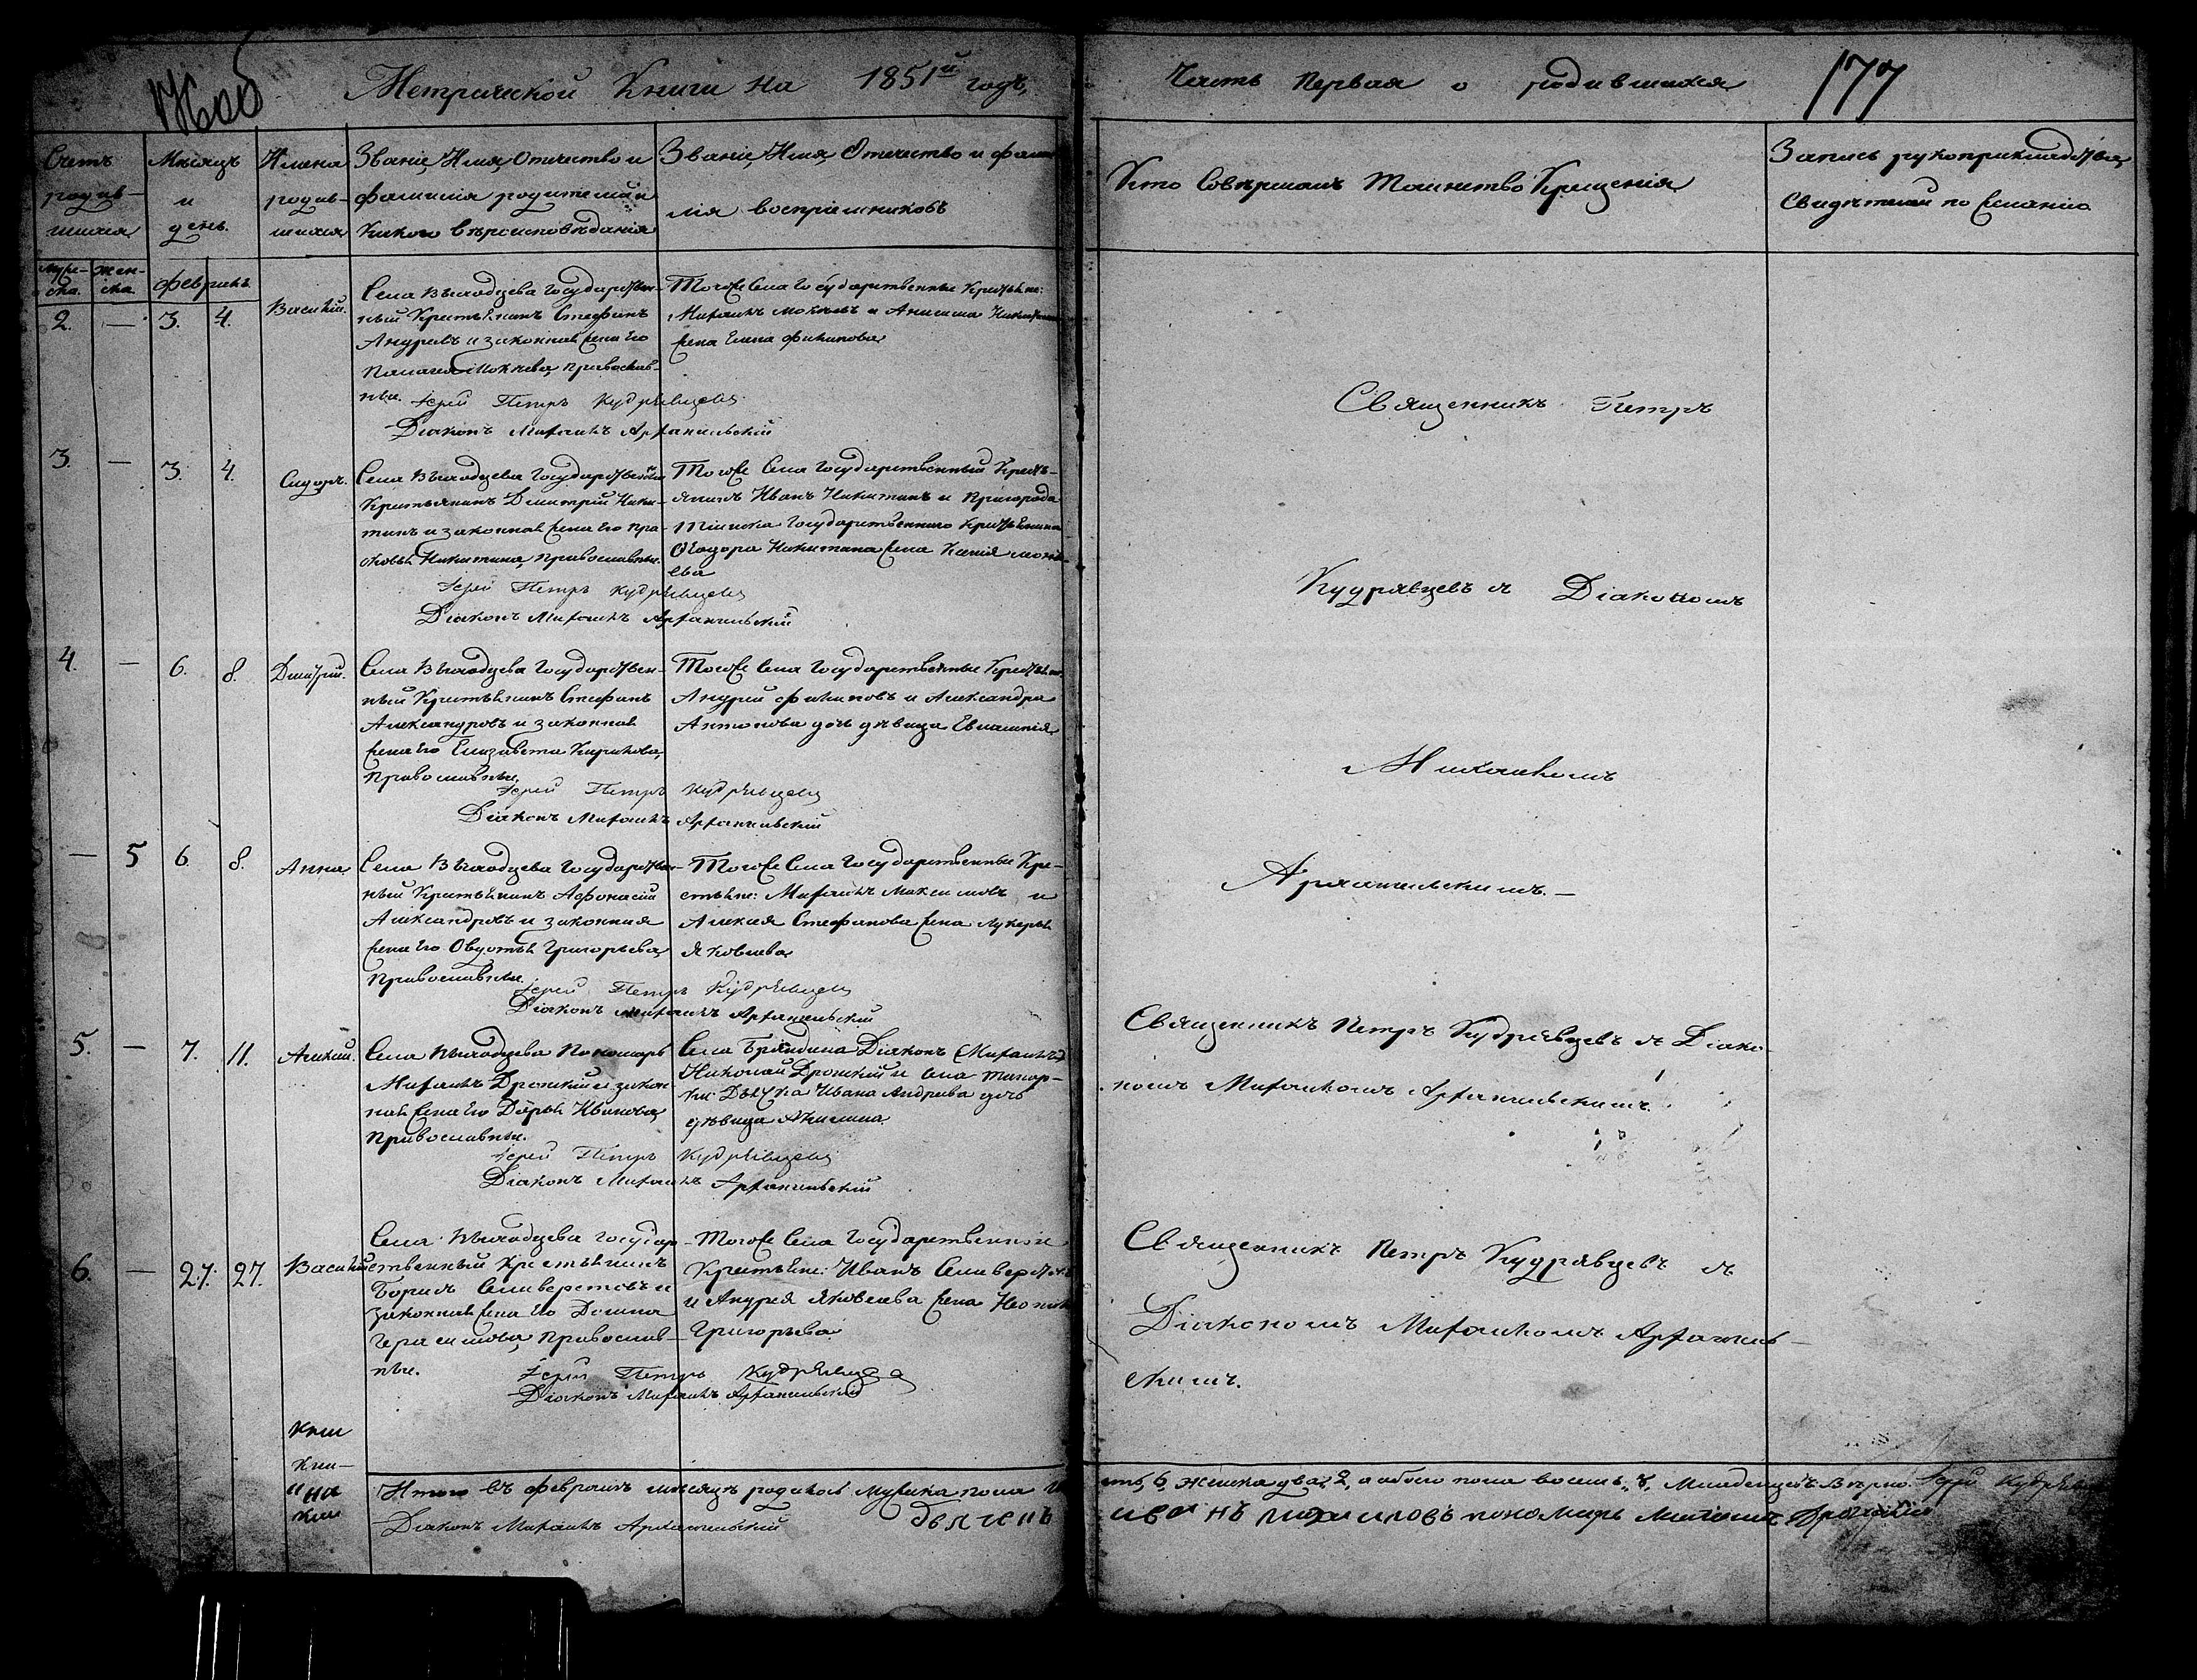 Метрической Книги на 1851й годъ,
Часть Первая о родившихся
177
Счетъ родив-шихся
Мѣсяцъ и день.
Имена родив-шихся
Званіе, Имя, Отчество и фамилія родителей и какого вѣроисповѣданія
Званіе, Имя, Отчество и фами-лія воспріемниковъ
Кто совершалъ Таинство Крещенія
Запись рукоприкладства свидѣтелей по желанію
муже-ска. жен-ска. февраль
2. — 3. 4. Василій.
Села Выходцева Государствен-
ный Крестьянинъ Стефанъ
Андреевъ и законная жена его
Пелагея Мокѣева, православ-
ные. Іерей Петръ Кудрявцевъ
Діаконъ Михаилъ Архангельскій
Тогоже Села Государственные Крестьяне:
Михаилъ Мокѣевъ и Анисима
жена Елена Филипова
3. — 3. 4. Сидоръ.
Села Выходцева Государственный
Крестьянинъ Дмитрій Ники-
тинъ и законная жена его Пра-
сковья Никитина, Православные.
Іерей Петръ Кудрявцевъ
Діаконъ Михаилъ Архангельскій
Тогоже Села Государственный Кресть-
янинъ Иванъ Никитинъ и Пригорода
Тіинска Государственнаго Крестьянина
Ѳеодора Никитина жена Ксенія
ева
4. — 6. 8. Дмитрій.
Села Выходцева Государствен-
ный Крестьянинъ Стефанъ
Александровъ и законная
жена его Елизавета Кирилова,
Православные.
Іерей Петръ Кудрявцевъ
Діаконъ Михаилъ Архангельскій
Тогоже Села Государственные Крестьяне:
Андрей Филиповъ и Александра
Антонова дочь дѣвица Евлампія
Священникъ Петръ
Кудрявцевъ съ Діакономъ
Михаиломъ
Архангельскимъ. —
— 5 6. 8. Анна
Села Выходцева Государствен-
ный Крестьянинъ Афонасій
Александровъ и законная
жена его Овдотья Григорьева
Православные.
Іерей Петръ Кудрявцевъ
Діаконъ Михаилъ Архангельскій
Тогоже Села Государственные Кре-
стьяне: Михаилъ Максимовъ и
Алексея Стефанова жена Лукерья
Яковлева
5. — 7. 11. Алексій.
Села Выходцева Пономарь
Михаилъ Дронскій и закон-
ная жена его Дарья Иванова,
Православные.
Іерей Петръ Кудрявцевъ
Діаконъ Михаилъ Архангельскій
Села Бряндина Діаконъ Михаилъ
Николай Дронскій и Села
Дьячка Ивана Андреева дочь
дѣвица
Священникъ Петръ Кудрявцевъ съ Діако-
номъ Михаиломъ Архангельскимъ.
6. — 27. 27. Василій
Села Выходцева государ-
ственный Крестьянинъ
Борисъ Селиверстовъ и
законная жена его Домна
Герасимова, Православ-
ные. Іерей Петръ Кудрявцевъ
Діаконъ Михаилъ Архангельскій
Тогоже Села Государственные
Крестьяне: Иванъ Селиверстовъ
и Андрея Яковлева жена
Григорьева
Священникъ Петръ Кудрявцевъ съ
Діакономъ Михаиломъ Архангель-
скимъ.
Итого въ февралѣ мѣсяцѣ родилось мужска пола ше-сть, 6, женска два, 2, а обоего пола восемь, 8, младенцевъ. Вѣрно. Іерей Кудрявцевъ
Діаконъ Михаилъ Архангельскій
пономарь Михаилъ Дронскій